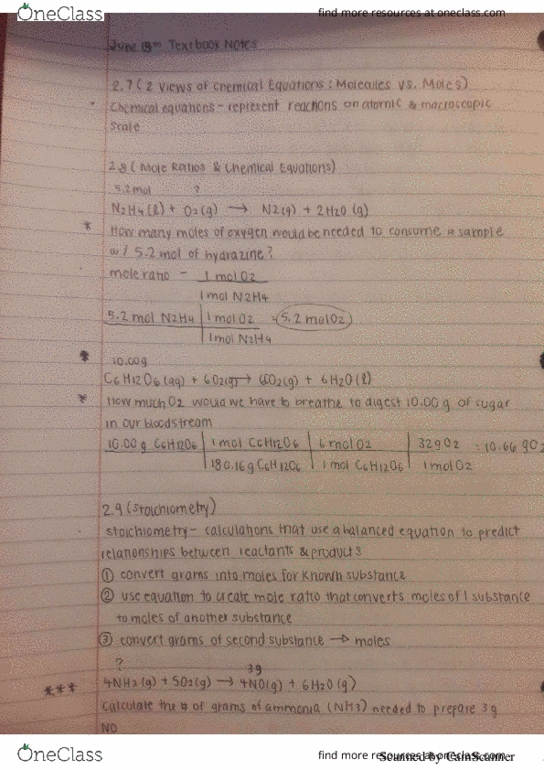 OneClass
find more resources at oneclass.com
June 13th Textbook Notes
2.7 (2 Views of Chemical Equations: Molecules vs. Moles)
Chemical equations - represent reactions on atomic & macroscopic
scale
2.8 (Mole Ratios & Chemical Equations)
5.2 mol ?
N2H4 (l) + O2 (g) → N2 (g) + 2H2O (g)
* How many moles of oxygen would be needed to consume a sample
w/ 5.2 mol of hydrazine?
mole ratio - 1 mol O2
1 mol N2H4
5.2 mol N2H4 | 1 mol O2 = 5.2 mol O2
1 mol N2H4
* 10.00g
C6H12O6 (aq) + 6O2(g) → 6CO2 (g) + 6H2O (l)
* How much O2 would we have to breathe to digest 10.00 g of sugar
in our bloodstream
10.00 g C6H12O6 | 1 mol C6H12O6 | 6 mol O2 | 32g O2 = 10.66 g O2
180.16g C6H12O6 | 1 mol C6H12O6 | 1 mol O2
2.9 (Stoichiometry)
stoichiometry - calculations that use a balanced equation to predict
relationships between reactants & products
① convert grams into moles for known substance
② use equation to create mole ratio that converts moles of 1 substance
to moles of another substance
③ convert grams of second substance → moles
? 3g
*** 4NH3 (g) + 5O2 (g) → 4NO(g) + 6H2O (g)
Calculate the # of grams of ammonia (NH3) needed to prepare 3g
NO
OneClass
find more resources at oneclass.com
Scanned by CamScanner